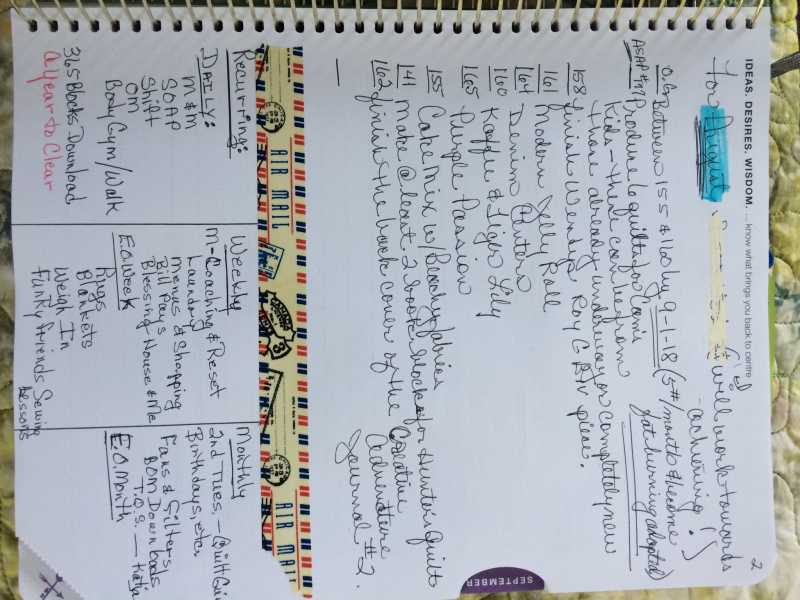 IDEAS. DESIRES. WISDOM. ... know what brings you back to centre
2
for August
will work towards
achieving!
Between 155 & 160 by 9-1-18 (5#/month & become
fat burning adapted)
ASAP #97 Produce 6 quilts for Comi
Kids - these can be from
those already underway or completely new
158 finish Wendy's Roy G Biv piece.
161 Modern Jelly Roll
164 Denim
160 Kaffe & Tiger Lily
165 Purple Passion
155 Cake Mix w/ Benaly fabrics
141 Make @ least 2 book blocks for Hunter's Quilt
162 finish the book cover of the Creative
Adventure
Journal #2.
SEPTEMBER
AIR MAIL
AIR MAIL
Recurring:
DAILY:
m & m
SOAP
Shift
OM
Body Gym/Walk
365 Blocks Download
A Year to Clear
Weekly
M-Coaching & Reset
Laundry
Menus & Shopping
Bill Pays
Blessing House & Me
E.O. Week
Rugs
Blankets
Weigh In
Funky Friends Sewing
Lessons
Monthly
2nd Tues. - Quilt Gui
Birthdays, etc.
Fans & Filters
BOM Downloads
T.O.S. - Katja
E.O. Month